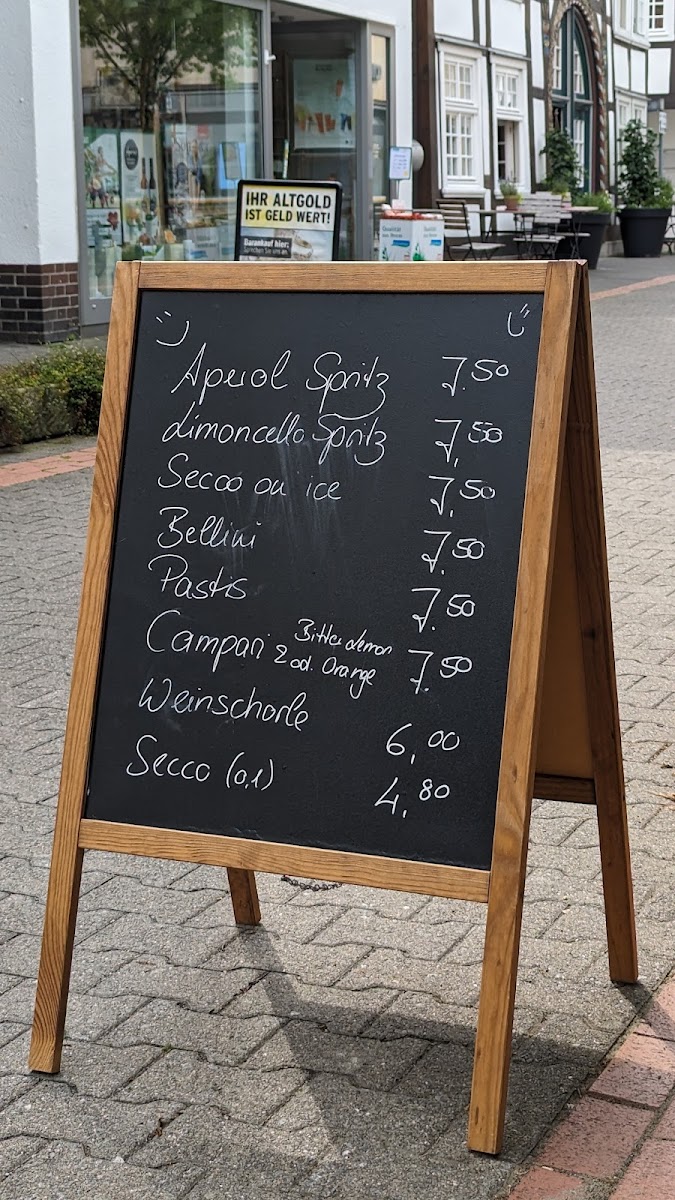 IHR ALTGOLD
IST GELD WERT!
Barankauf hier:
Aperol Spritz 7,50
Limoncello Spritz 7,50
Secco on ice 7,50
Bellini 7,50
Pastis 7,50
Campari Bitterlemon
od. Orange 7,50
Weinschorle 6,00
Secco (0,1) 4,80